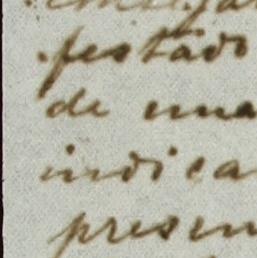 festado
de una
indica
presen